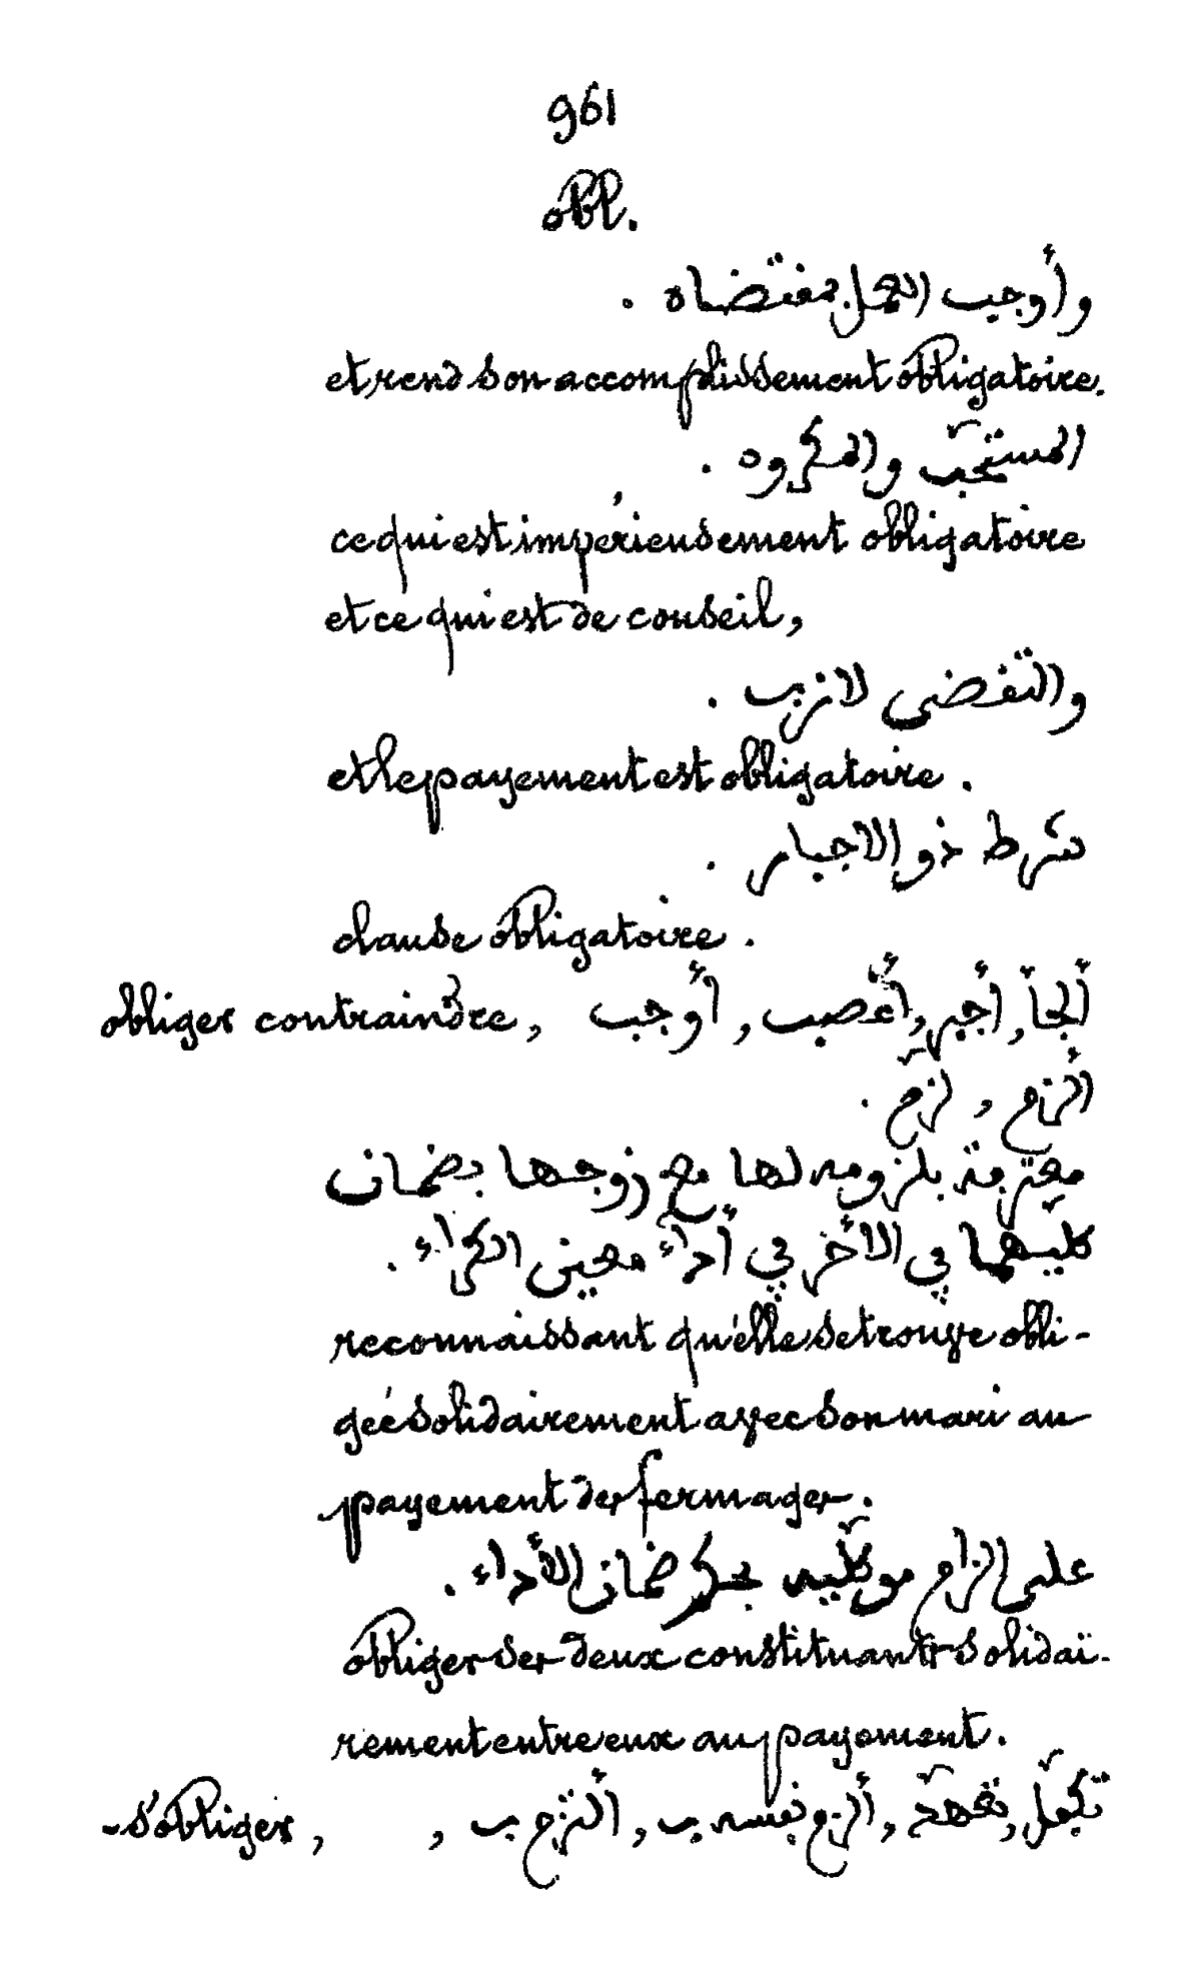 961
obl.
وأوجب العمل بمقتضاه .
et rend son accomplissement obligatoire.
المستحبّ والمكروه .
ce qui est impérieusement obligatoire
et ce qui est de conseil,
والتقضى لازب .
et le payement est obligatoire .
شرط ذو الاجبار .
clause obligatoire .
obliger contraindre, ألجأ, أجبر, أغصب, أوجب
ألزم , لزّم .
معترفة بلزومه لها مع زوجها بضمان
كليهما في الأخر في أداء معين الكراء .
reconnaissant qu'elle se trouve obli-
gée solidairement avec son mari au
payement des fermages .
على الزام موكّليه بحكم ضمان الأداء .
obliger ses deux constituants solidai-
rement entre eux au payement .
- s'obliger, تكفّل, تعهّد, ألزم نفسه ب, ألتزم ب ,